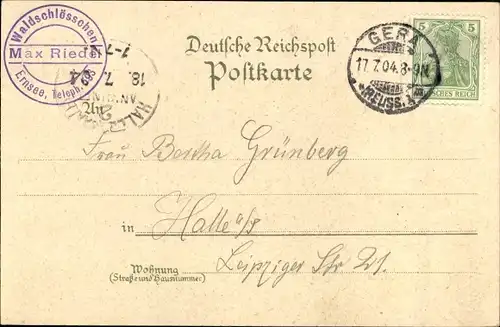 Waldschlösschen
Max Riedel
Ernsee, Teleph. 393
1-7N
18. 7. 04
HALLE
Deutsche Reichspost
Postkarte
GERA
17.7.04.8-9N.
*(REUSS.)*
5 5
DEUTSCHES REICH
An
Frau Bertha Grünberg
in Halle a/S
Wohnung
(Straße und Hausnummer)
Leipziger Str 21.